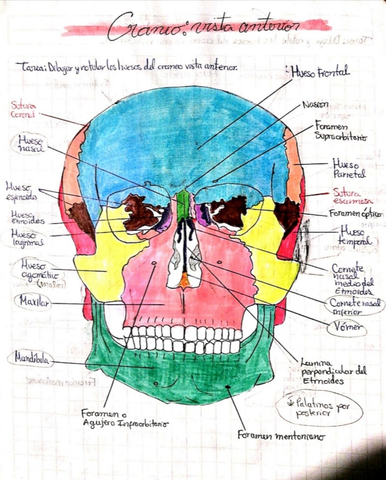 Craneo: vista anterior
Tarea: Dibujar y rotular los huesos del craneo vista anterior.
Hueso Frontal
Sutura
Coronal
Nasion
Foramen
Supraorbitario
Hueso
nasal
Hueso
Parietal
Huesos
esfenoides
Sutura
escamosa
Foramen óptico
Hueso
etmoides
Hueso
lagrimal
Hueso
temporal
Hueso
cigomático
(malar)
Cornete
nasal
medio del
Etmoides
Maxilar
Cornete nasal
inferior
Vómer
Mandíbula
Lamina
perpendicular del
Etmoides
↓ Palatinos por
posterior
Foramen o
Agujero Infraorbitario
Foramen mentoniano